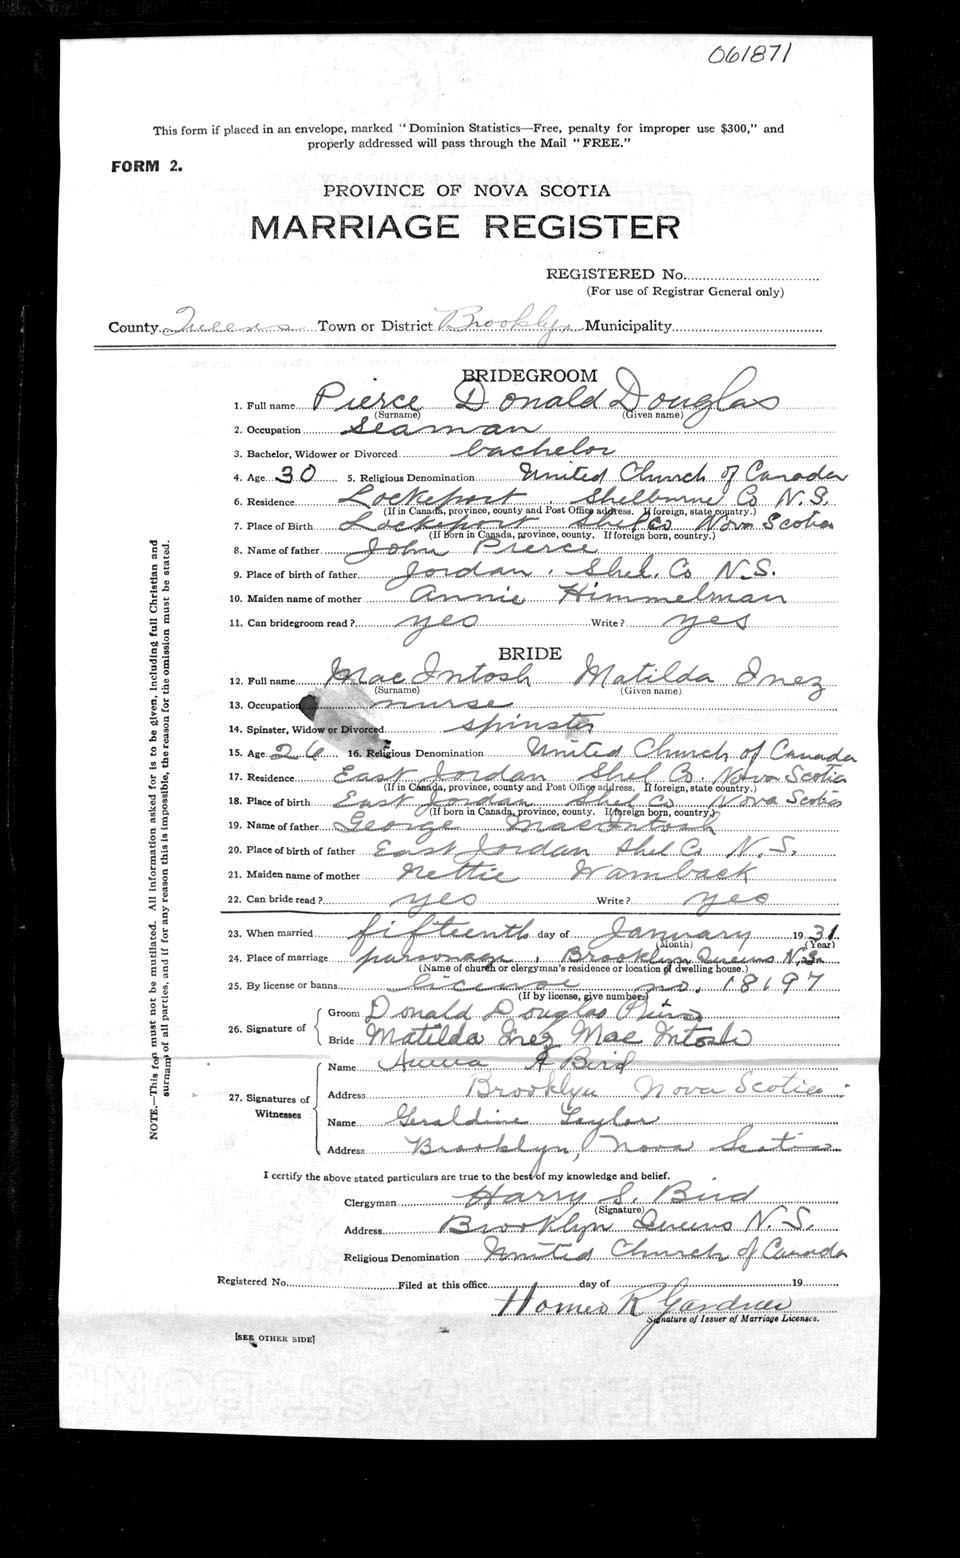 061871
This form if placed in an envelope, marked "Dominion Statistics—Free, penalty for improper use $300," and
properly addressed will pass through the Mail "FREE."
FORM 2.
PROVINCE OF NOVA SCOTIA
MARRIAGE REGISTER
REGISTERED No.
(For use of Registrar General only)
County Queens Town or District Brooklyn Municipality
BRIDEGROOM
1. Full name Pierce Donald Douglas
(Surname) (Given name)
2. Occupation Seaman
3. Bachelor, Widower or Divorced bachelor
4. Age 30 5. Religious Denomination United Church of Canada
6. Residence Lockeport, Shelburne Co N.S.
(If in Canada, province, county and Post Office address. If foreign, state country.)
7. Place of Birth Lockeport Shel Co Nova Scotia
(If born in Canada, province, county. If foreign born, country.)
8. Name of father John Pierce
9. Place of birth of father Jordan, Shel. Co N.S.
10. Maiden name of mother Annie Himmelman
11. Can bridegroom read? yes Write? yes
BRIDE
12. Full name MacIntosh Matilda Inez
(Surname) (Given name)
13. Occupation nurse
14. Spinster, Widow or Divorced spinster
15. Age 26 16. Religious Denomination United Church of Canada
17. Residence East Jordan Shel Co. Nova Scotia
(If in Canada, province, county and Post Office address. If foreign, state country.)
18. Place of birth East Jordan Shel Co Nova Scotia
(If born in Canada, province, county. If foreign born, country.)
19. Name of father George MacIntosh
20. Place of birth of father East Jordan Shel Co N.S.
21. Maiden name of mother Nettie Wamback
22. Can bride read? yes Write? yes
23. When married fifteenth day of January 1931
(Month) (Year)
24. Place of marriage parsonage, Brooklyn Queens N.S.
(Name of church or clergyman's residence or location of dwelling house.)
25. By license or banns license no. 18197
(If by license, give number)
26. Signature of Groom Donald Douglas
Bride Matilda Inez MacIntosh
27. Signatures of Witnesses
Name A Bird
Address Brooklyn Nova Scotia
Name Geraldine Taylor
Address Brooklyn, Nova Scotia
I certify the above stated particulars are true to the best of my knowledge and belief.
Clergyman Harry S. Bird
(Signature)
Address Brooklyn Queens N.S.
Religious Denomination United Church of Canada
Registered No. Filed at this office day of 19
Homer R Gardner
Signature of Issuer of Marriage Licenses.
[SEE OTHER SIDE]
NOTE.—This form must not be mutilated. All information asked for is to be given, including full Christian and
surname of all parties, and if for any reason this is impossible, the reason for the omission must be stated.